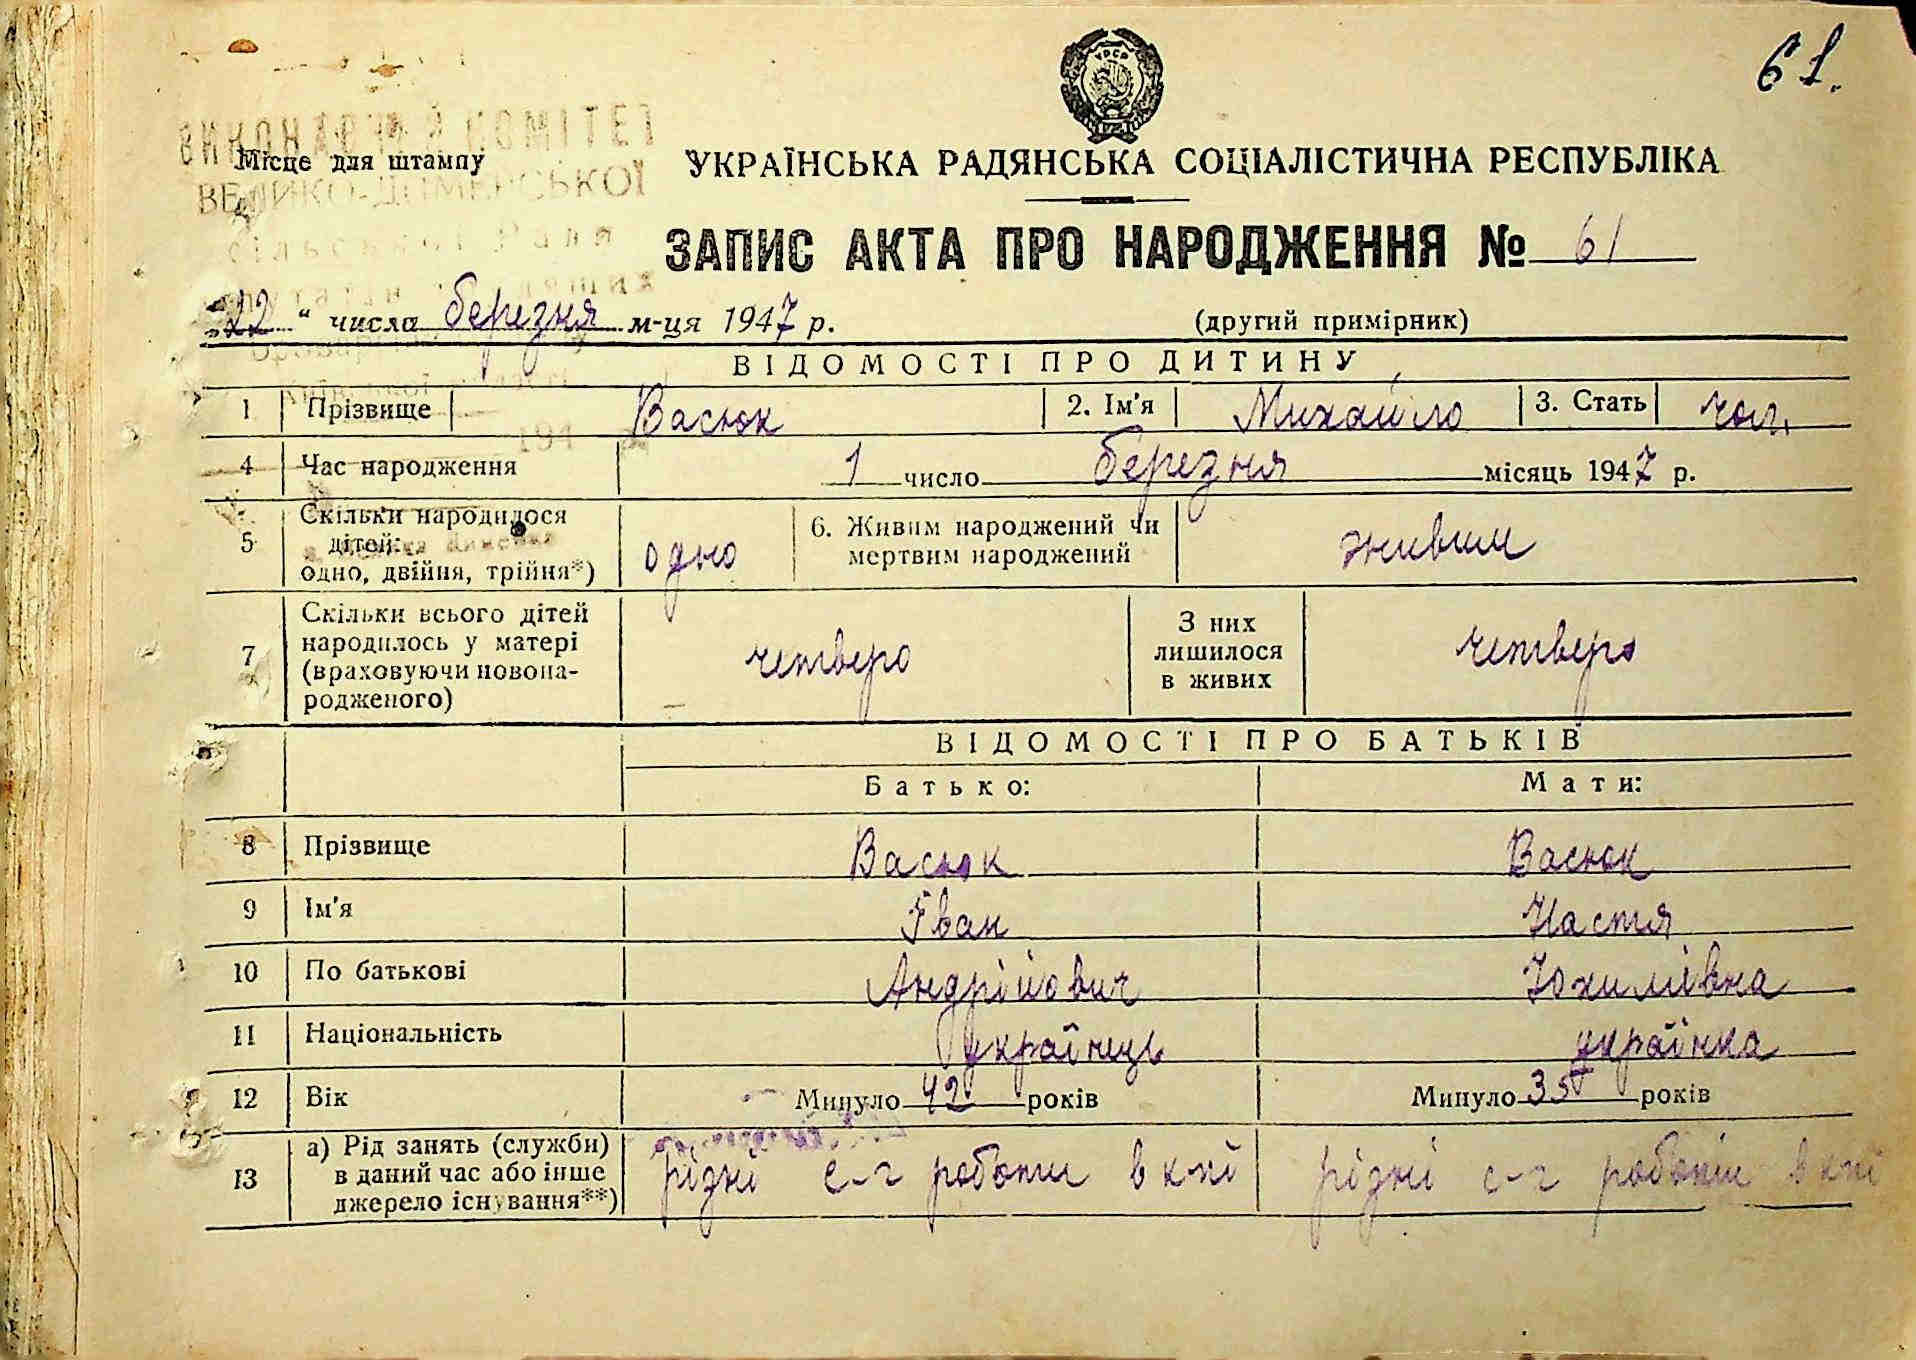 61.
УРСР
ВИКОНАВЧИЙ КОМІТЕТ
Місце для штампу
ВЕЛИКО-ДИМЕРСЬКОЇ
УКРАЇНСЬКА РАДЯНСЬКА СОЦІАЛІСТИЧНА РЕСПУБЛІКА
ЗАПИС АКТА ПРО НАРОДЖЕННЯ № 61
„22“ числа березня м-ця 1947 р. (другий примірник)
ВІДОМОСТІ ПРО ДИТИНУ
1 Прізвище Васюк 2. Ім'я Михайло 3. Стать чол.
4 Час народження 1 число березня місяць 1947 р.
5 Скільки народилося
дітей:
одно, двійня, трійня*) одно 6. Живим народжений чи
мертвим народжений живим
7 Скільки всього дітей
народилось у матері
(враховуючи новона-
родженого) четверо З них
лишилося
в живих четверо
ВІДОМОСТІ ПРО БАТЬКІВ
Батько: Мати:
8 Прізвище Васюк Васюк
9 Ім'я Іван Настя
10 По батькові Андрійович Йохимівна
11 Національність українець українка
12 Вік Минуло 42 років Минуло 35 років
13 а) Рід занять (служби)
в даний час або інше
джерело існування**) рідні с-г роботи в кпі рідні с-г роботи в кпі